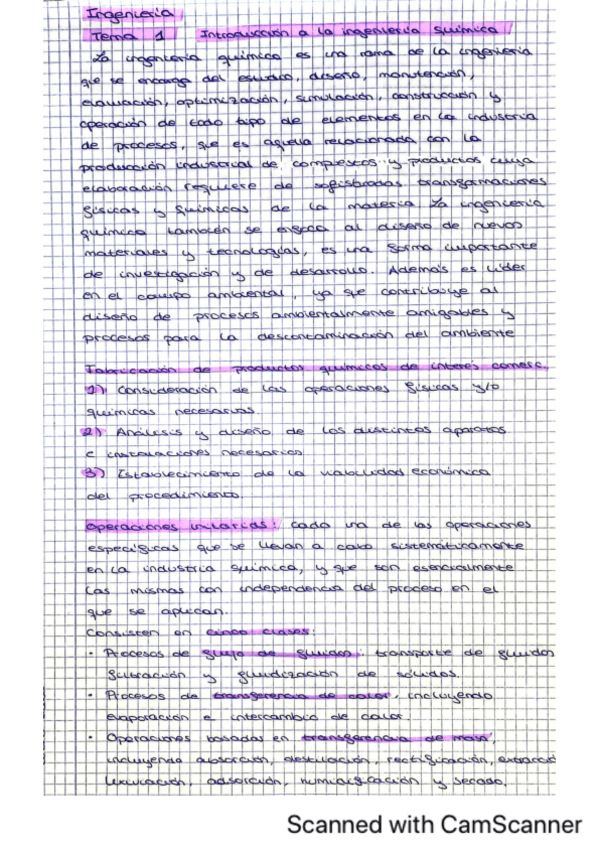 Ingeniería
Tema 1 Introducción a la ingeniería química
La ingeniería química es una rama de la ingeniería
que se encarga del estudio, diseño, manutención,
evaluación, optimización, simulación, construcción y
operación de todo tipo de elementos en la industria
de procesos, que es aquella relacionada con la
producción industrial de compuestos y productos cuya
elaboración requiere de sofisticadas transformaciones
físicas y químicas de la materia. La ingeniería
química también se enfoca al diseño de nuevos
materiales y tecnologías, es una forma importante
de investigación y de desarrollo. Además es líder
en el campo ambiental, ya que contribuye al
diseño de procesos ambientalmente amigables y
procesos para la descontaminación del ambiente
Fabricación de productos químicos de interés comerc.
1) Consideración de las operaciones físicas y/o
químicas necesarias.
2) Análisis y diseño de los distintos aparatos
e instalaciones necesarios
3) Establecimiento de la viabilidad económica
del procedimiento.
Operaciones unitarias: cada una de las operaciones
específicas que se llevan a cabo sistemáticamente
en la industria química, y que son esencialmente
las mismas con independencia del proceso en el
que se aplican.
Consisten en cinco clases:
· Procesos de flujo de fluidos: transporte de fluidos
filtración y fluidización de sólidos.
· Procesos de transferencia de calor, incluyendo
evaporación e intercambio de calor.
· Operaciones basadas en transferencia de masa,
incluyendo absorción, destilación, rectificación, extracció
lixiviación, adsorción, humidificación y secado.
Scanned with CamScanner